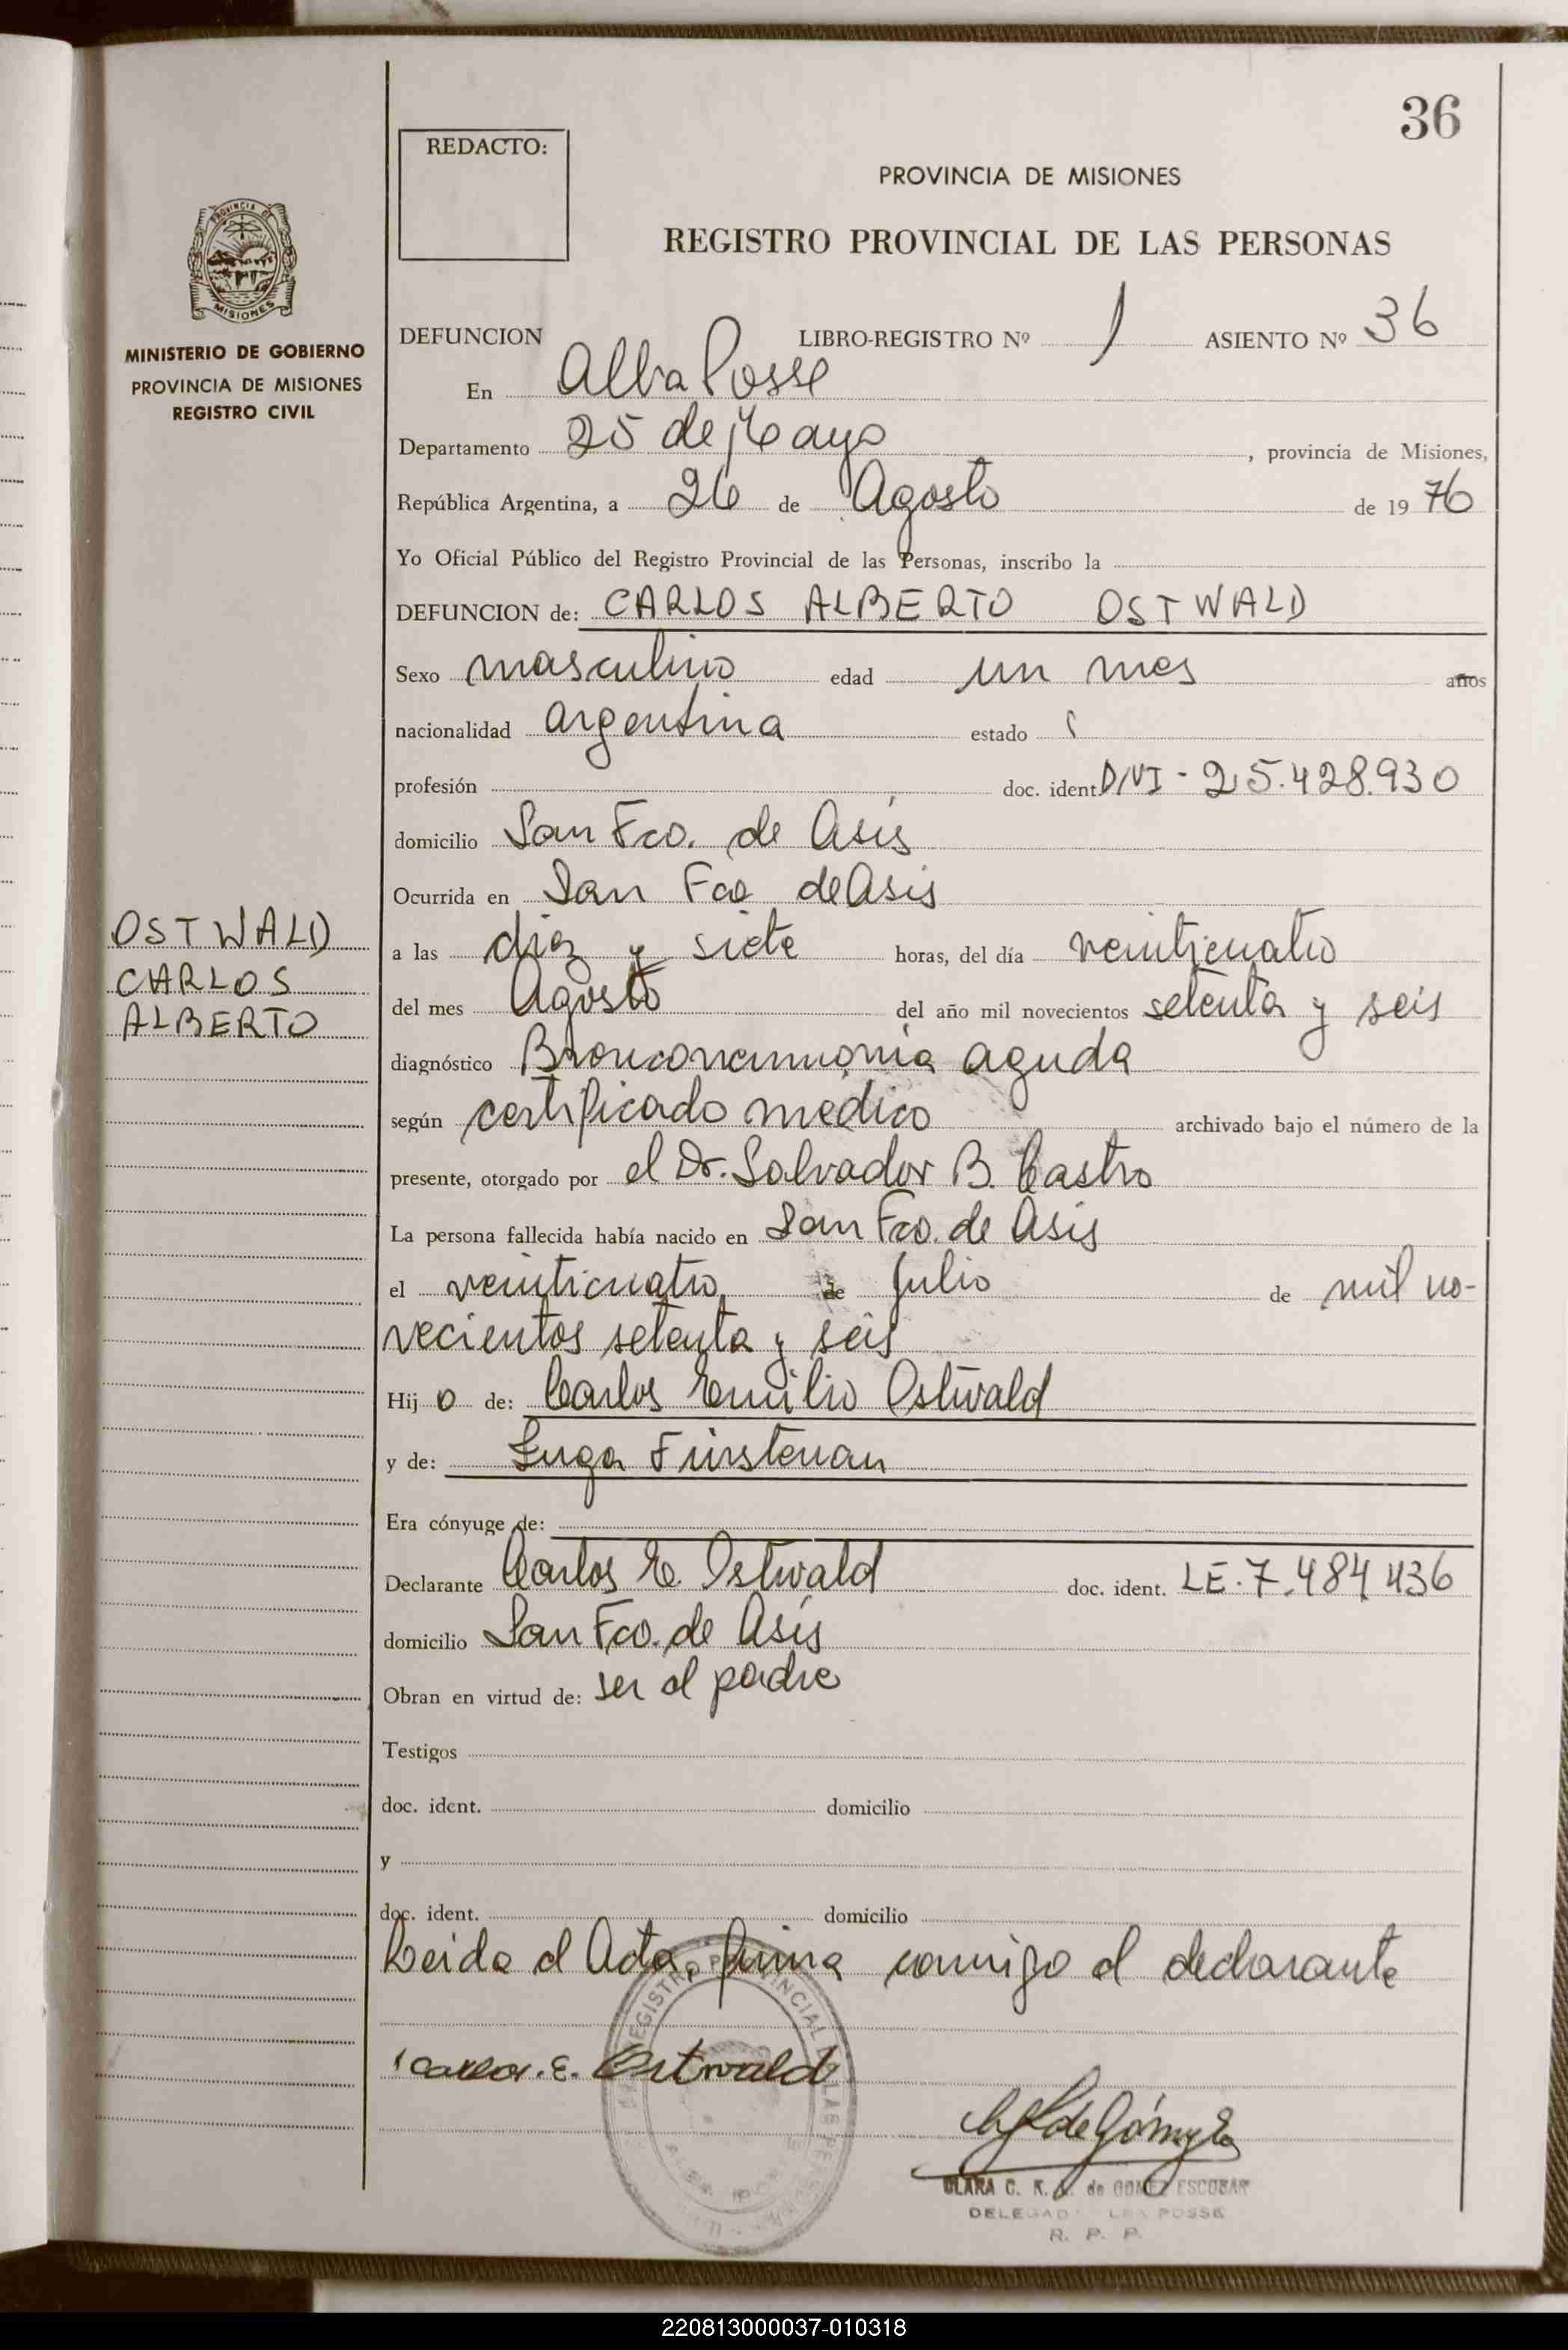 36
REDACTO:
PROVINCIA DE MISIONES
REGISTRO PROVINCIAL DE LAS PERSONAS
PROVINCIA DE
MISIONES
MINISTERIO DE GOBIERNO
PROVINCIA DE MISIONES
REGISTRO CIVIL
DEFUNCION LIBRO-REGISTRO Nº 1 ASIENTO Nº 36
En Alba Posse
Departamento 25 de Mayo, provincia de Misiones,
República Argentina, a 26 de Agosto de 1976
Yo Oficial Público del Registro Provincial de las Personas, inscribo la
DEFUNCION de: CARLOS ALBERTO OSTWALD
Sexo masculino edad un mes años
nacionalidad argentina estado
profesión doc. ident. DNI - 25.428.930
domicilio San Fco. de Asis
Ocurrida en San Fco de Asis
OSTWALD
CARLOS
ALBERTO
a las diez y siete horas, del día veinticuatro
del mes Agosto del año mil novecientos setenta y seis
diagnóstico Bronconeumonia aguda
según certificado medico archivado bajo el número de la
presente, otorgado por el Dr. Salvador B. Castro
La persona fallecida había nacido en San Fco. de Asis
el veinticuatro de Julio de mil no-
vecientos setenta y seis
Hijo de: Carlos Emilio Ostwald
y de: Inga Fürstenau
Era cónyuge de:
Declarante Carlos E. Ostwald doc. ident. LE. 7.484.436
domicilio San Fco. de Asis
Obran en virtud de: ser el padre
Testigos
doc. ident. domicilio
y
doc. ident. domicilio
Leida el Acta, firma conmigo el declarante
REGISTRO PROVINCIAL DE LAS PERSONAS
Carlos. E. Ostwald
CLARA C. K. de GOMEZ ESCOBAR
DELEGADA ALBA POSSE
R. P. P.
220813000037-010318